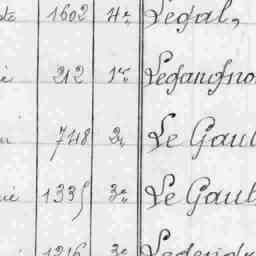 1602 4e Legal,
212 1re Legangno
748 2e Le Gaul
1335 3e Le Gaul
1216 3e